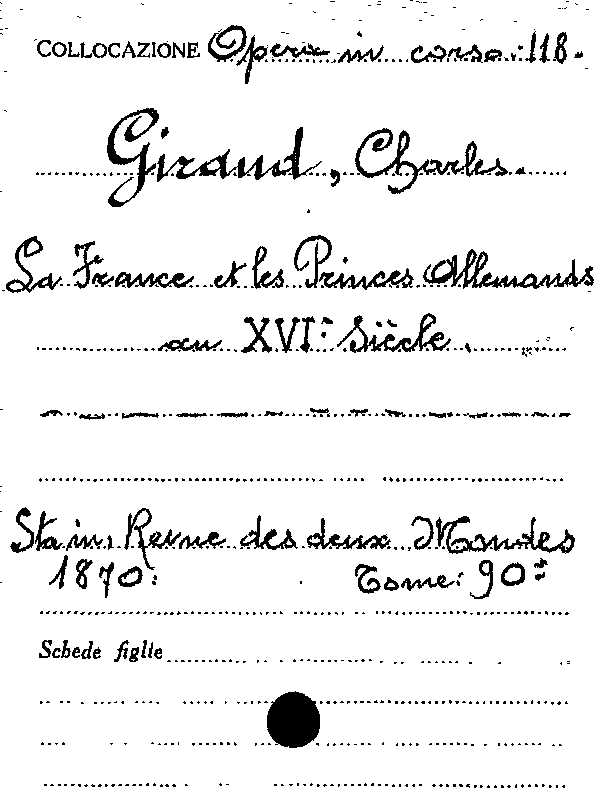 COLLOCAZIONE Opera in corso: 118.
Giraud, Charles.
La France et les Princes Allemands
au XVIe Siècle.
Sta in: Revue des deux Mondes
1870: Tome: 90e
Schede figlie